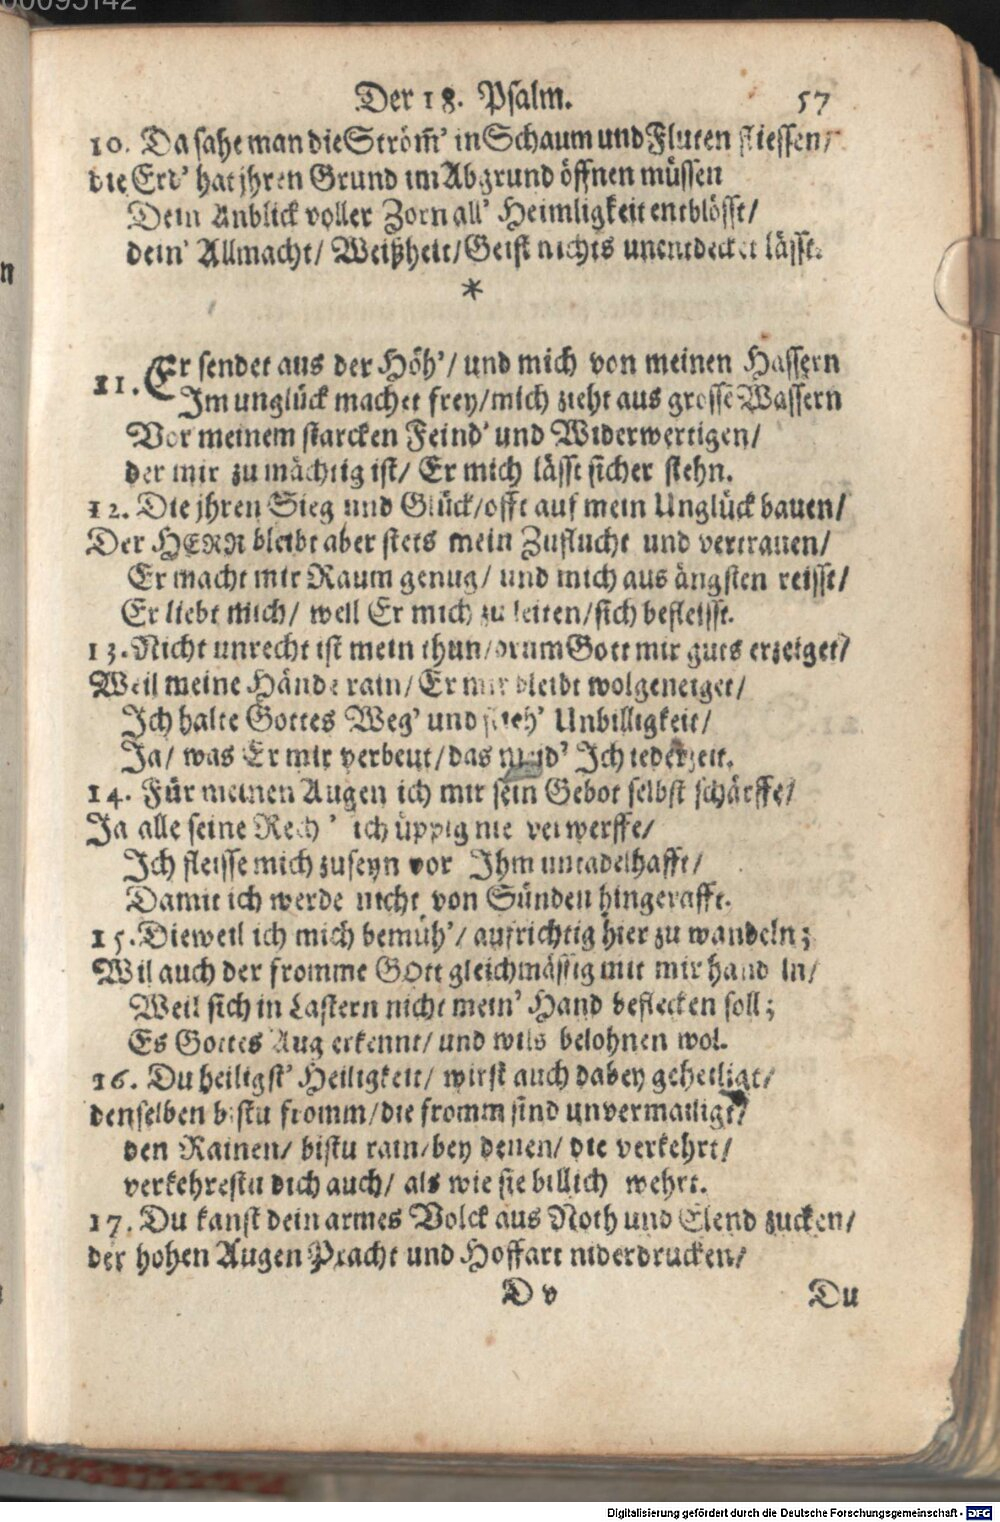 00095142
Der 18. Psalm. 57
10. Da sahe man die Ström̃' in Schaum und Fluten fliessen/
die Erd' hat jhren Grund im Abgrund öffnen müssen
Dein Anblick voller Zorn all' Heimligkeit entblösst/
dein' Allmacht/ Weißheit/ Geist nichts unentdecket lässt.
*
11. Er sendet aus der Höh'/ und mich von meinen Hassern
Im unglück machet frey/ mich zieht aus grosse Wassern
Vor meinem starcken Feind' und Widerwertigen/
der mir zu mächtig ist/ Er mich lässt sicher stehn.
12. Die jhren Sieg und Glück/ offt auf mein Unglück bauen/
Der HERR bleibt aber stets mein Zuflucht und vertrauen/
Er macht mir Raum genug/ und mich aus ängsten reisst/
Er liebt mich/ weil Er mich zu leiten/ sich befleisst.
13. Nicht unrecht ist mein thun/ drum Gott mir guts erzeiget/
Weil meine Hände rain/ Er mir bleibt wolgeneiget/
Ich halte Gottes Weg' und flieh' Unbilligkeit/
Ja/ was Er mir verbeut/ das meid' Ich iederzeit.
14. Für meinen Augen ich mir sein Gebot selbst schärffe/
Ja alle seine Rech ' ich üppig nie verwerffe/
Ich fleisse mich zuseyn vor Ihm untadelhafft/
Damit ich werde nicht von Sünden hingerafft.
15. Dieweil ich mich bemüh'/ aufrichtig hier zu wandeln;
Wil auch der fromme GOtt gleichmässig mit mir hand ln/
Weil sich in Lastern nicht mein' Hand beflecken soll;
Es Gottes Aug erkennt/ und wils belohnen wol.
16. Du heiligst' Heiligkeit/ wirst auch dabey geheiligt/
denselben bistu fromm/ die fromm sind unvermailigt/
den Rainen/ bistu rain/ bey denen/ die verkehrt/
verkehrestu dich auch/ als wie sie billich wehrt.
17. Du kanst dein armes Volck aus Noth und Elend zucken/
der hohen Augen Pracht und Hoffart niderdrucken/
D v Du
Digitalisierung gefördert durch die Deutsche Forschungsgemeinschaft - DFG